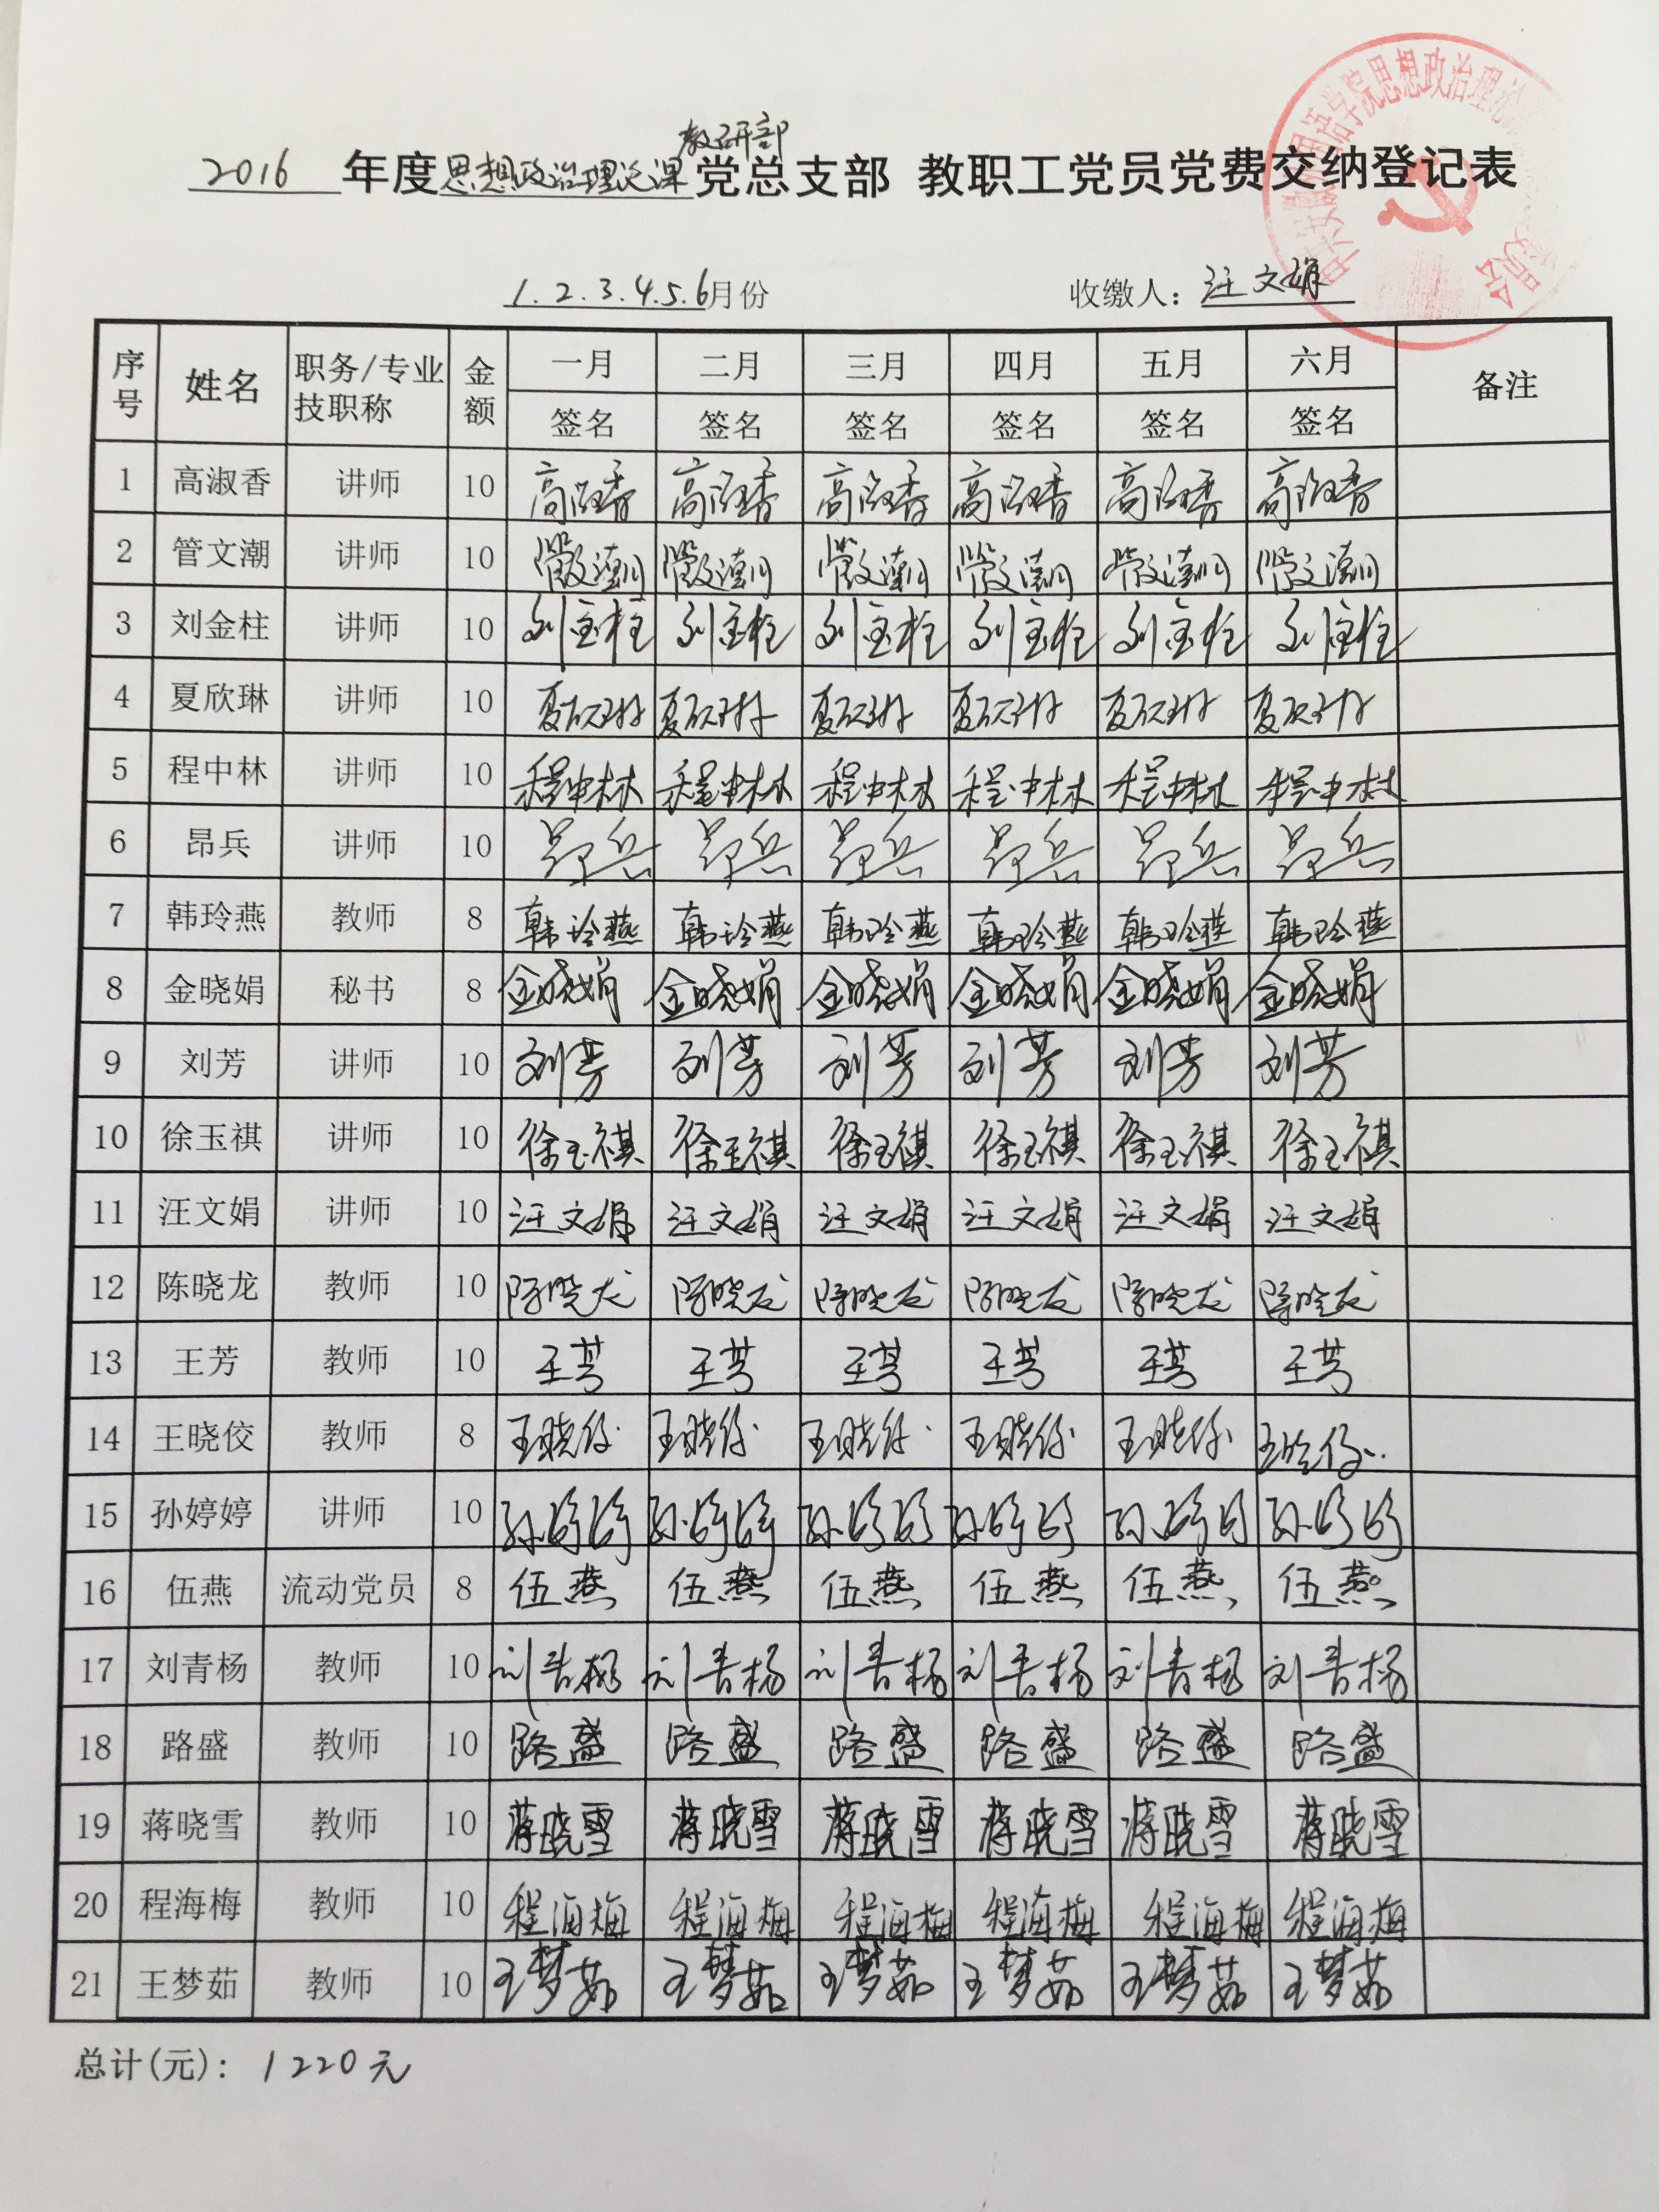 教研部
2016 年度思想政治理论课党总支部 教职工党员党费交纳登记表
1.2.3.4.5.6月份 收缴人：汪文娟
序号 姓名 职务/专业技职称 金额 一月 二月 三月 四月 五月 六月 备注
签名 签名 签名 签名 签名 签名
1 高淑香 讲师 10 高淑香 高淑香 高淑香 高淑香 高淑香 高淑香
2 管文潮 讲师 10 管文潮 管文潮 管文潮 管文潮 管文潮 管文潮
3 刘金柱 讲师 10 刘金柱 刘金柱 刘金柱 刘金柱 刘金柱 刘金柱
4 夏欣琳 讲师 10 夏欣琳 夏欣琳 夏欣琳 夏欣琳 夏欣琳 夏欣琳
5 程中林 讲师 10 程中林 程中林 程中林 程中林 程中林 程中林
6 昂兵 讲师 10 昂兵 昂兵 昂兵 昂兵 昂兵 昂兵
7 韩玲燕 教师 8 韩玲燕 韩玲燕 韩玲燕 韩玲燕 韩玲燕 韩玲燕
8 金晓娟 秘书 8 金晓娟 金晓娟 金晓娟 金晓娟 金晓娟 金晓娟
9 刘芳 讲师 10 刘芳 刘芳 刘芳 刘芳 刘芳 刘芳
10 徐玉祺 讲师 10 徐玉祺 徐玉祺 徐玉祺 徐玉祺 徐玉祺 徐玉祺
11 汪文娟 讲师 10 汪文娟 汪文娟 汪文娟 汪文娟 汪文娟 汪文娟
12 陈晓龙 教师 10 陈晓龙 陈晓龙 陈晓龙 陈晓龙 陈晓龙 陈晓龙
13 王芳 教师 10 王芳 王芳 王芳 王芳 王芳 王芳
14 王晓佼 教师 8 王晓佼 王晓佼 王晓佼 王晓佼 王晓佼 王晓佼
15 孙婷婷 讲师 10 孙婷婷 孙婷婷 孙婷婷 孙婷婷 孙婷婷 孙婷婷
16 伍燕 流动党员 8 伍燕 伍燕 伍燕 伍燕 伍燕 伍燕
17 刘青杨 教师 10 刘青杨 刘青杨 刘青杨 刘青杨 刘青杨 刘青杨
18 路盛 教师 10 路盛 路盛 路盛 路盛 路盛 路盛
19 蒋晓雪 教师 10 蒋晓雪 蒋晓雪 蒋晓雪 蒋晓雪 蒋晓雪 蒋晓雪
20 程海梅 教师 10 程海梅 程海梅 程海梅 程海梅 程海梅 程海梅
21 王梦茹 教师 10 王梦茹 王梦茹 王梦茹 王梦茹 王梦茹 王梦茹
总计(元)：1220元